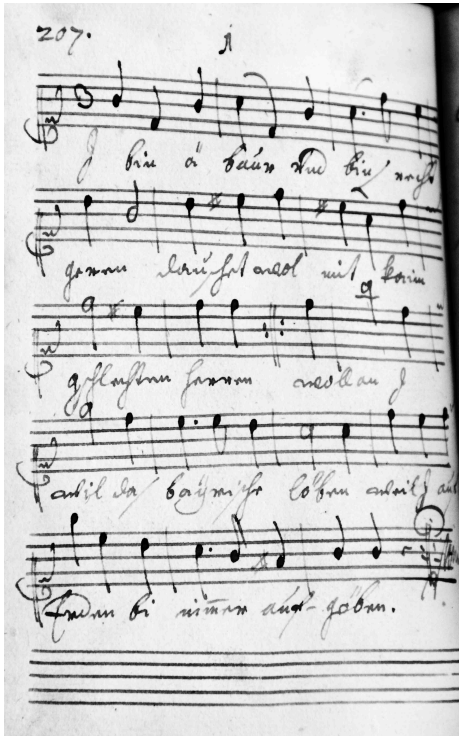 207.
J bin ä baur und bin recht
geren dauschet wol mit kaim
gschlechten herren wollan J
wil das bayrische löben weil J auf
Erden bi nimmer auf-göben.